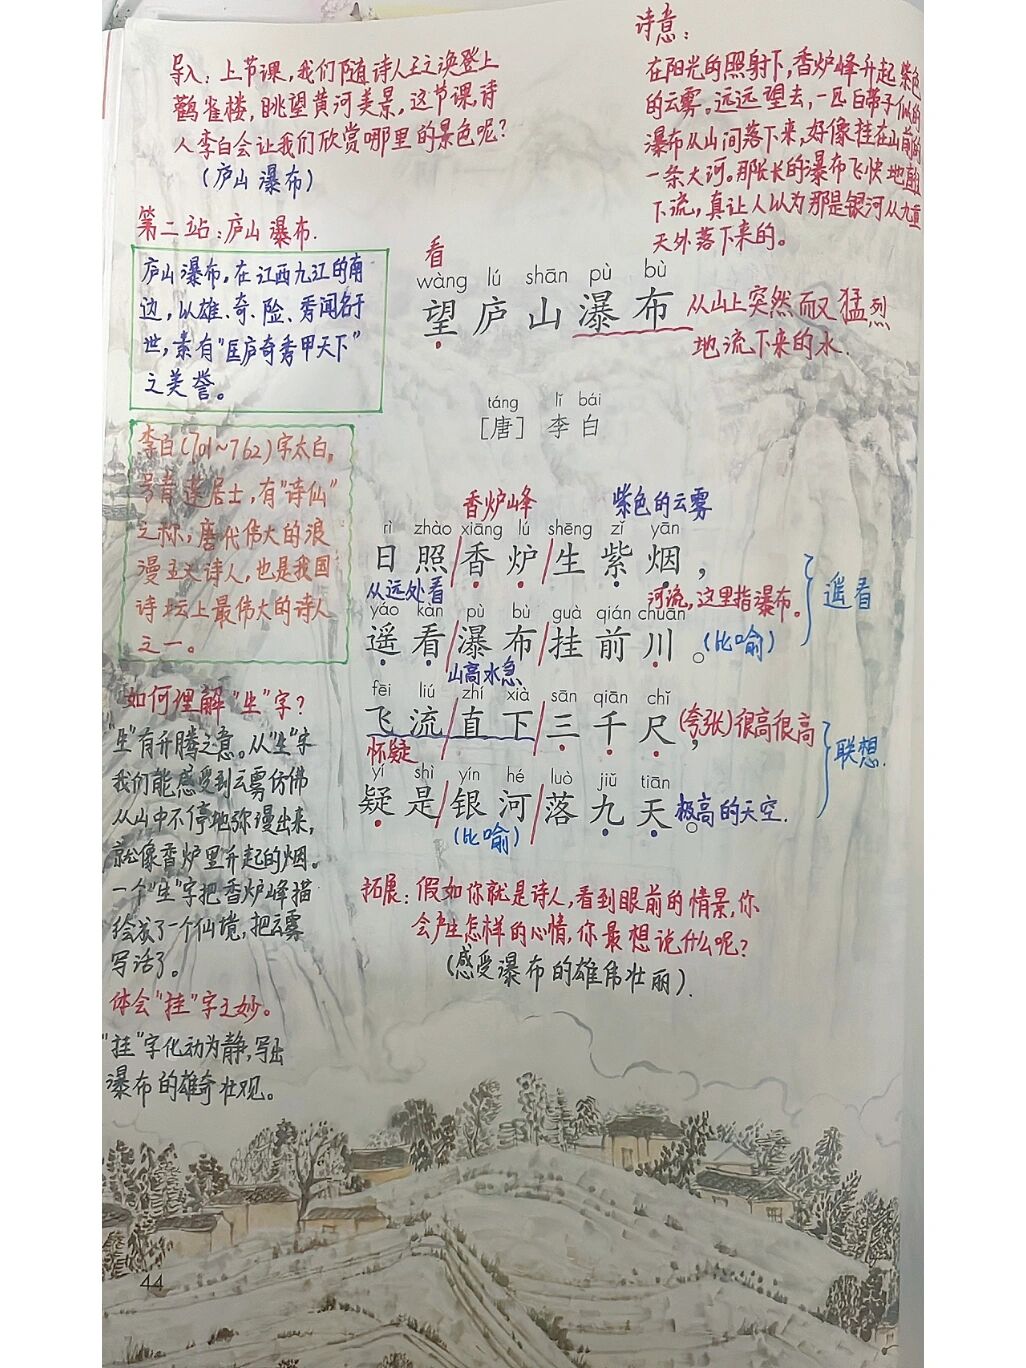 导入：上节课，我们随诗人王之涣登上
鹳雀楼，眺望黄河美景，这节课，诗
人李白会让我们欣赏哪里的景色呢？
（庐山瀑布）
第二站：庐山瀑布.
庐山瀑布，在江西九江的南
边，以雄、奇、险、秀闻名于
世，素有“匡庐奇秀甲天下”
之美誉。
李白（701~762）字太白，
号青莲居士，有“诗仙”
之称，唐代伟大的浪
漫主义诗人，也是我国
诗坛上最伟大的诗人
之一。
如何理解“生”字？
“生”有升腾之意。从“生”字
我们能感受到云雾仿佛
从山中不停地弥漫出来，
就像香炉里升起的烟。
一个“生”字把香炉峰描
绘成了一个仙境，把云雾
写活了。
体会“挂”字之妙。
“挂”字化动为静，写出
瀑布的雄奇壮观。
诗意：
在阳光的照射下，香炉峰升起紫色
的云雾。远远望去，一匹白带子似的
瀑布从山间落下来，好像挂在山前的
一条大河。那长长的瀑布飞快地直
下流，真让人以为那是银河从九重
天外落下来的。
看
wàng lú shān pù bù
望庐山瀑布
从山上突然而又猛烈
地流下来的水.
táng lǐ bái
［唐］ 李白
香炉峰 紫色的云雾
rì zhào xiāng lú shēng zǐ yān
日照/香炉/生紫烟，
从远处看 河流，这里指瀑布。
yáo kàn pù bù guà qián chuān
遥看/瀑布/挂前川。（比喻）
遥看
山高水急
fēi liú zhí xià sān qiān chǐ
飞流/直下/三千尺，（夸张）很高很高
怀疑
联想.
yí shì yín hé luò jiǔ tiān
疑是/银河/落九天。极高的天空.
（比喻）
拓展：假如你就是诗人，看到眼前的情景，你
会产生怎样的心情，你最想说什么呢？
（感受瀑布的雄伟壮丽）.
44